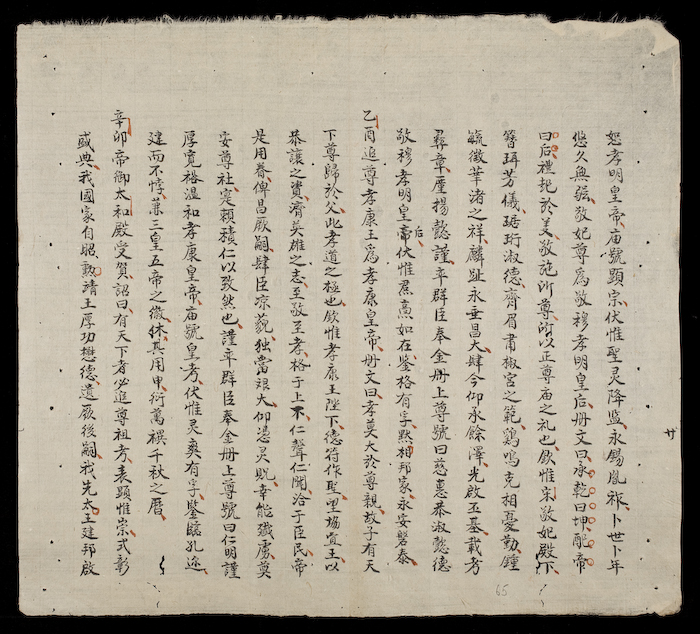 恕孝明皇帝庙號顕宗伏惟聖灵降监永錫胤祚卜世卜年
悠久無疆敬妃尊爲敬穆孝明皇后册文曰承乾曰坤配帝
曰后禮起於美敬施所尊所以正尊庙之礼也欽惟宋敬妃殿下
簪珥芳儀琚珩淑德齊眉肅椒宮之範鷄鳴克相憂勤鍾
毓徵華渚之祥麟趾永垂昌大肆今仰承餘澤光啟丕基載考
彛章歷揚懿謹率群臣奉金册上尊號曰慈惠恭淑懿德
敬穆孝明皇帝后伏惟君蒿如在鉴格有孚默相邦家永安磐泰
乙酉追尊孝康王爲孝康皇帝册文曰孝莫大於尊親故子有天
下尊歸於父此孝道之極也欽惟孝康王陛下德符作聖望埸宜王以
恭讓之資濟英雄之志至敬至孝格于上不仁聲仁聞洽于臣民帝
是用眷俾昌厥嗣肆臣凉藐独當艰大仰憑灵貺幸能殲虜奠
安尊社寔頼積仁以致然也謹率群臣奉金册上尊號曰仁明謹
厚寬裕温和孝康皇帝庙號皇考伏惟灵爽有孚鑒臨孔迩
建而不悖兼三皇五帝之徽休其用申衍萬禩千秋之曆
辛卯帝御太和殿受賀詔曰有天下者必追尊祖考表顕惟崇式彰
盛典我國家自昭勲靖王厚功懋德遺厥後嗣我先太王建邦啟
廿
65